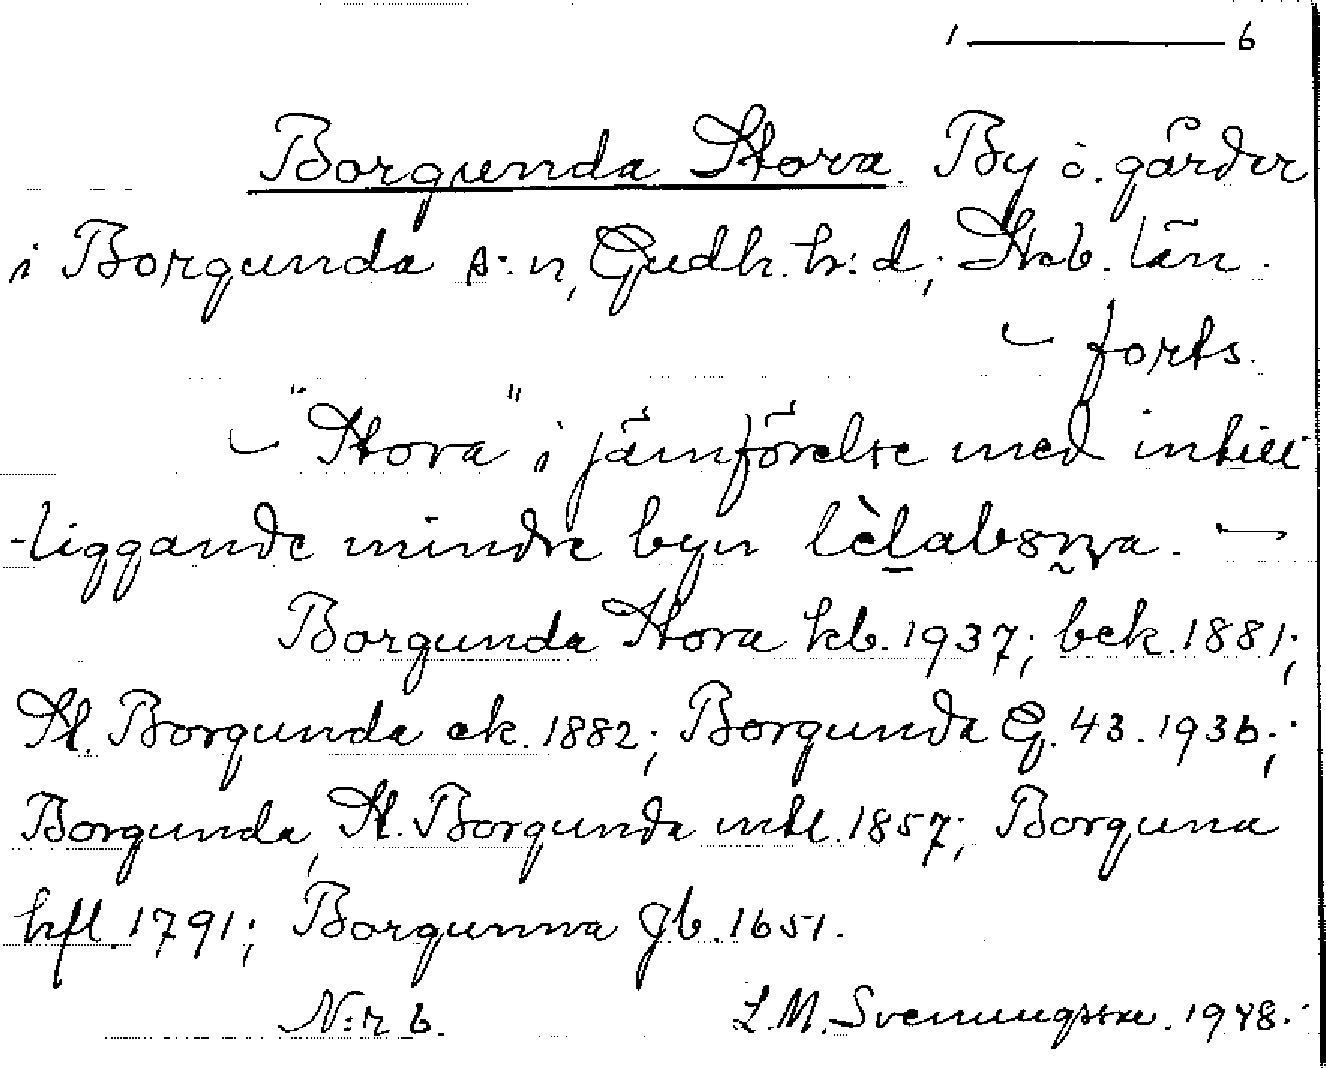 1 — 6
Borgunda Stora. By o. gårder
i Borgunda s:n, Gudh. h:d; Skb. län.
– forts.
– "Stora" i jämförelse med intill-
-liggande mindre byn –
Borgunda Stora kb. 1937; bek. 1881;
St. Borgunda ek. 1882; Borgunda G. 43. 1936;
Borgunda, St. Borgunda mtl. 1857; Borguna
hfl. 1791; Borgunna Jb. 1651.
N:r 6. L. M. Svenungsson. 1948.